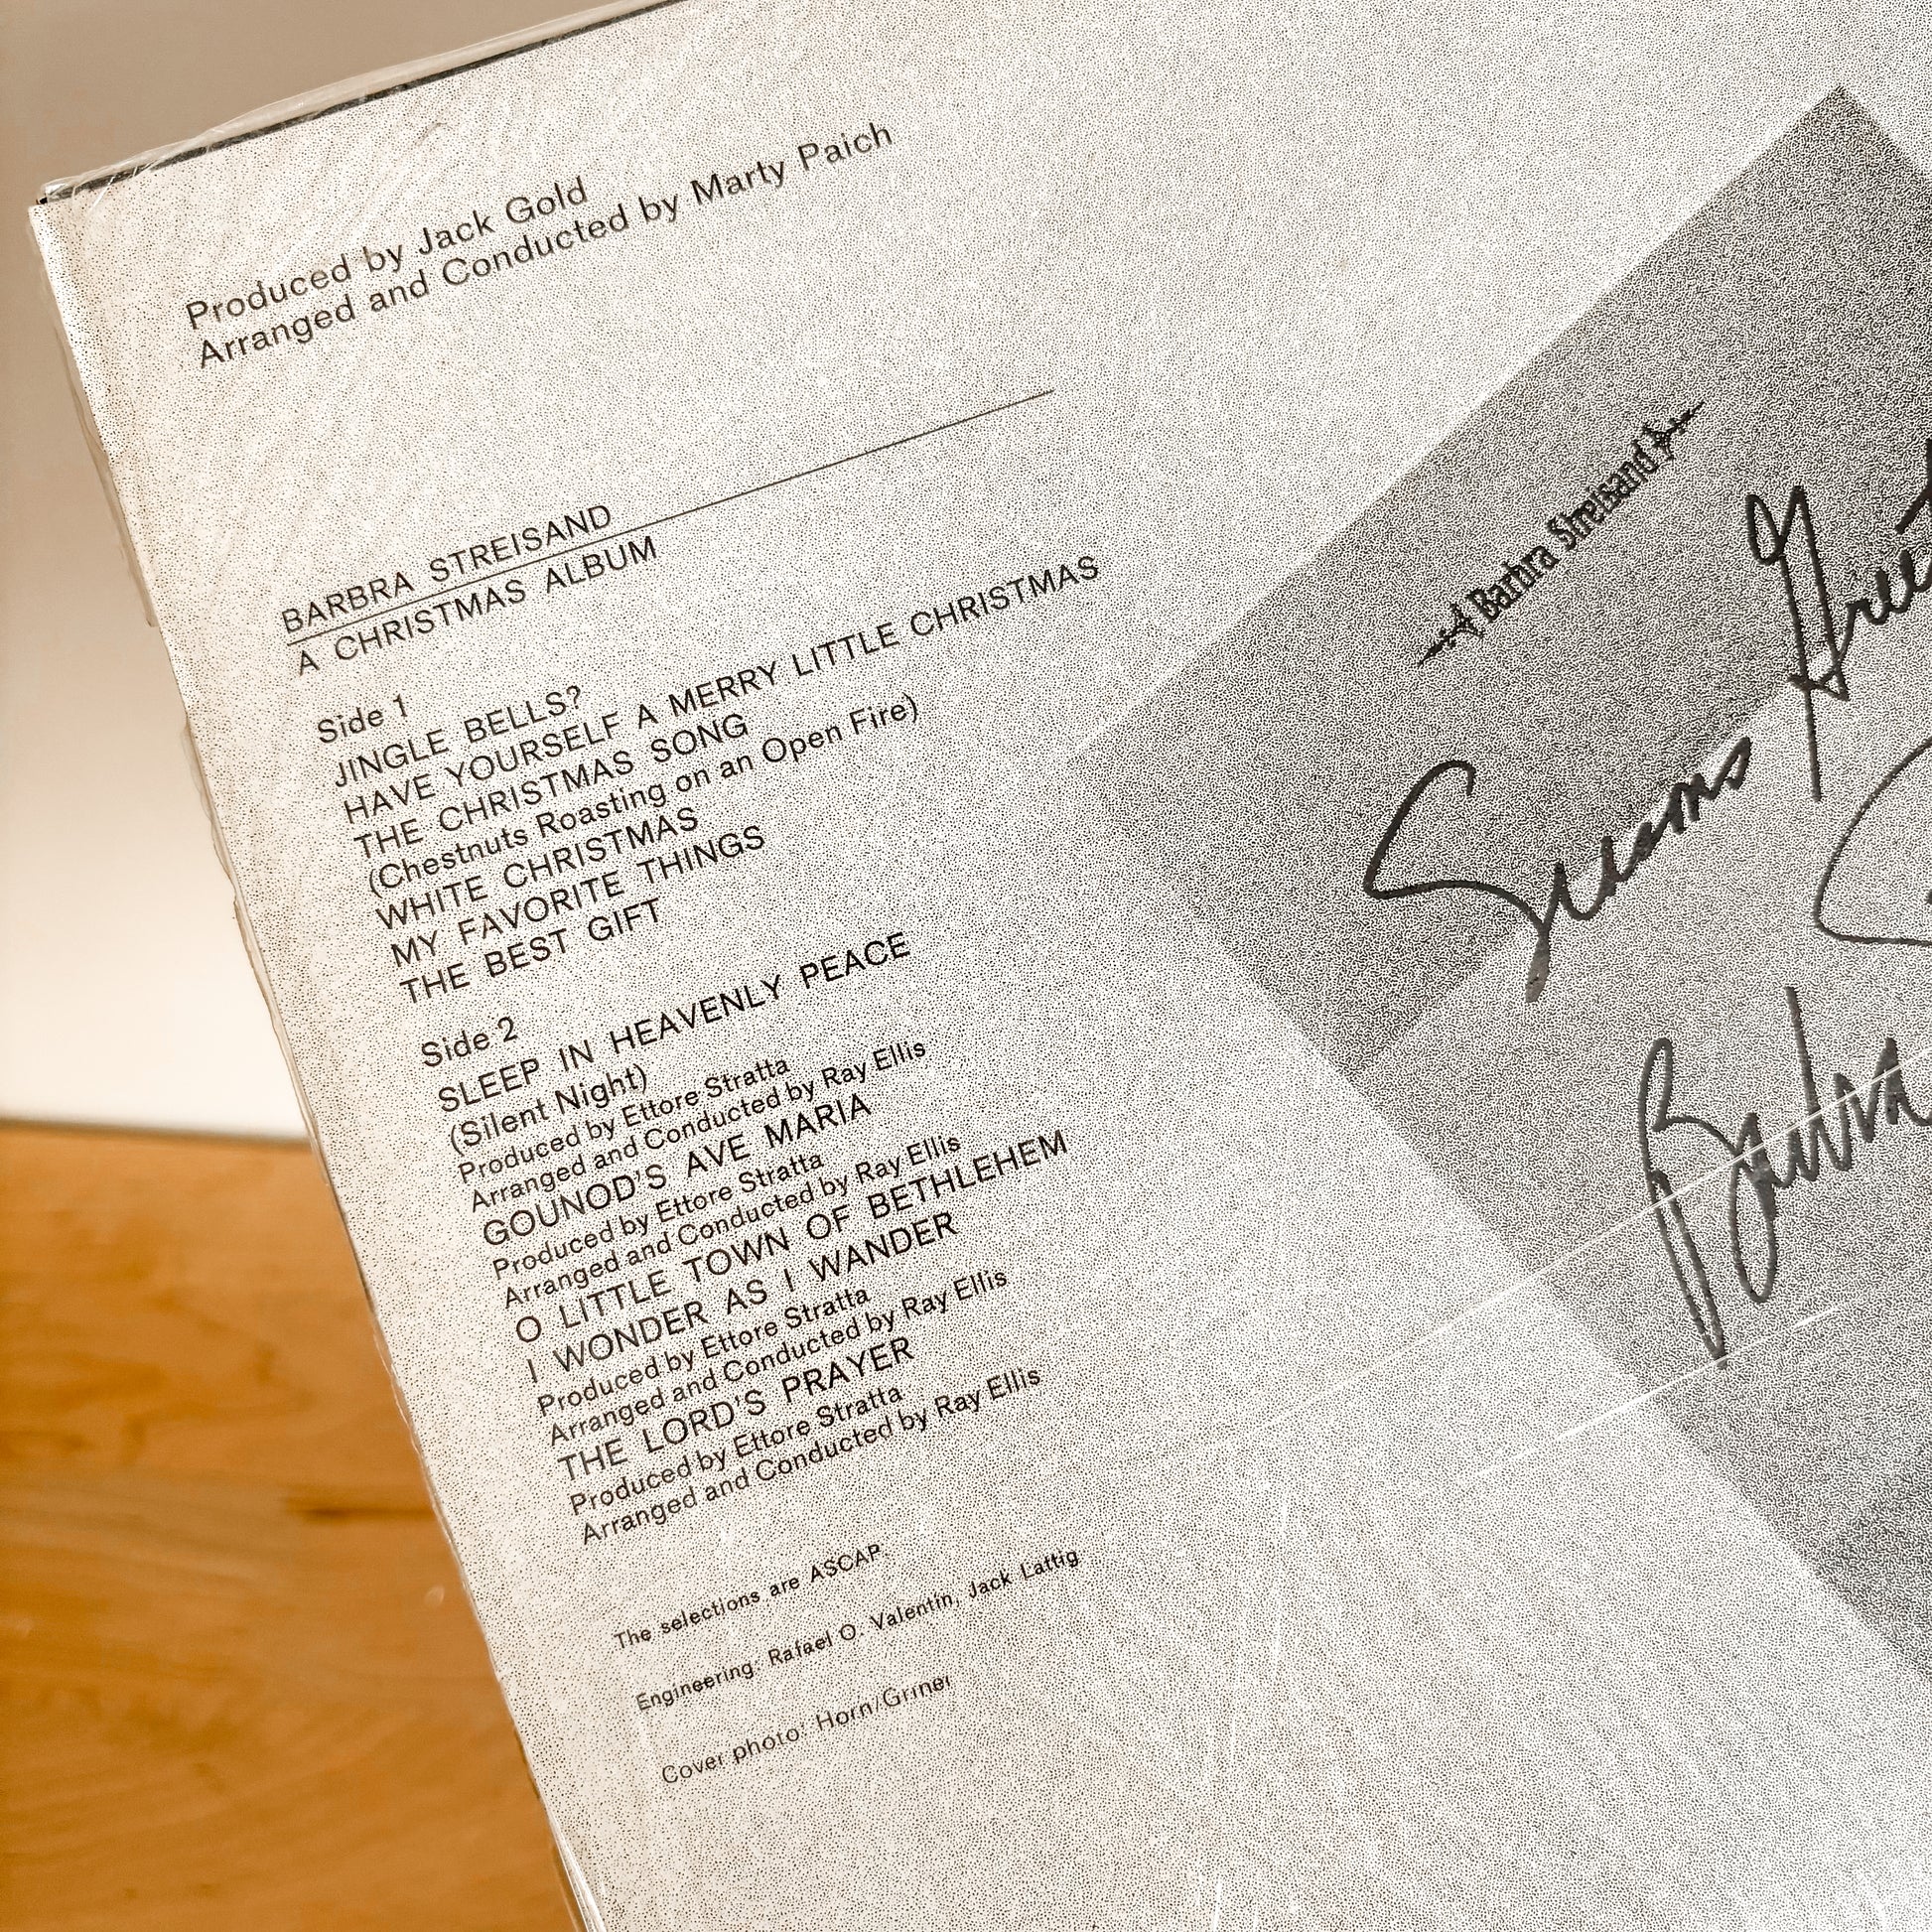 Produced by Jack Gold
Arranged and Conducted by Marty Paich
BARBRA STREISAND
A CHRISTMAS ALBUM
Side 1
JINGLE BELLS?
HAVE YOURSELF A MERRY LITTLE CHRISTMAS
THE CHRISTMAS SONG
(Chestnuts Roasting on an Open Fire)
WHITE CHRISTMAS
MY FAVORITE THINGS
THE BEST GIFT
Side 2
SLEEP IN HEAVENLY PEACE
(Silent Night)
Produced by Ettore Stratta
Arranged and Conducted by Ray Ellis
GOUNOD'S AVE MARIA
Produced by Ettore Stratta
Arranged and Conducted by Ray Ellis
O LITTLE TOWN OF BETHLEHEM
I WONDER AS I WANDER
Produced by Ettore Stratta
Arranged and Conducted by Ray Ellis
THE LORD'S PRAYER
Produced by Ettore Stratta
Arranged and Conducted by Ray Ellis
The selections are ASCAP.
Engineering: Rafael O. Valentin, Jack Lattig
Cover photo: Horn/Griner
Barbra Streisand
Seasons
Barbra